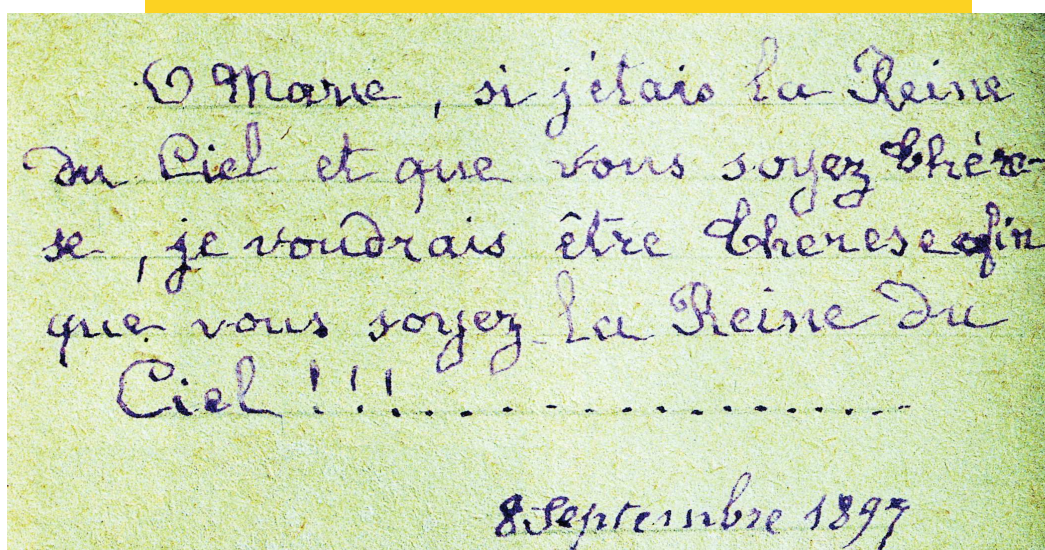 O Marie, si j'étais la Reine
du Ciel et que vous soyez Thérè-
se, je voudrais être Therese afin
que vous soyez la Reine du
Ciel !!!..................
8 Septembre 1897